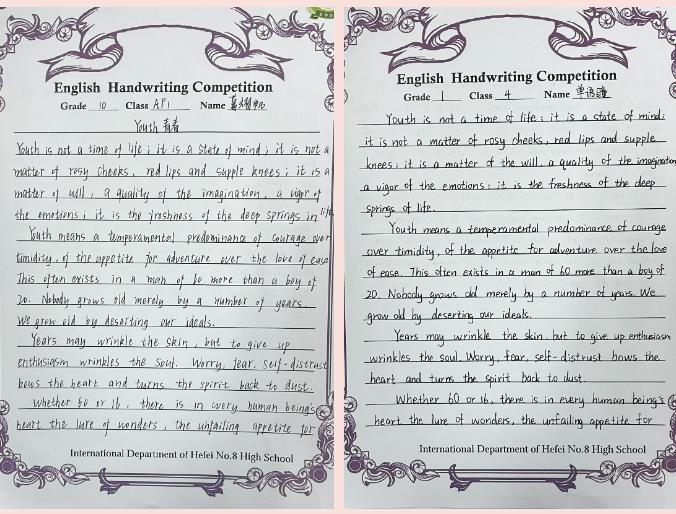 English Handwriting Competition
Grade 10 Class AP1 Name
Youth 青春
Youth is not a time of life; it is a state of mind; it is not a
matter of rosy cheeks, red lips and supple knees; it is a
matter of will, a quality of the imagination, a vigor of
the emotions; it is the freshness of the deep springs in life.
Youth means a temperamental predominance of courage over
timidity, of the appetite for adventure over the love of ease
This often exists in a man of 60 more than a boy of
20. Nobody grows old merely by a number of years
We grow old by deserting our ideals.
Years may wrinkle the skin, but to give up
enthusiasm wrinkles the soul. Worry, fear, self-distrust
bows the heart and turns the spirit back to dust.
Whether 60 or 16, there is in every human being's
heart the lure of wonders, the unfailing appetite for
International Department of Hefei No.8 High School
English Handwriting Competition
Grade 1 Class 4 Name
Youth is not a time of life; it is a state of mind;
it is not a matter of rosy cheeks, red lips and supple
knees; it is a matter of the will, a quality of the imagination
a vigor of the emotions; it is the freshness of the deep
springs of life.
Youth means a temperamental predominance of courage
over timidity, of the appetite for adventure over the love
of ease. This often exists in a man of 60 more than a boy of
20. Nobody grows old merely by a number of years. We
grow old by deserting our ideals.
Years may wrinkle the skin, but to give up enthusiasm
wrinkles the soul. Worry, fear, self-distrust bows the
heart and turns the spirit back to dust.
Whether 60 or 16, there is in every human being's
heart the lure of wonders, the unfailing appetite for
International Department of Hefei No.8 High School